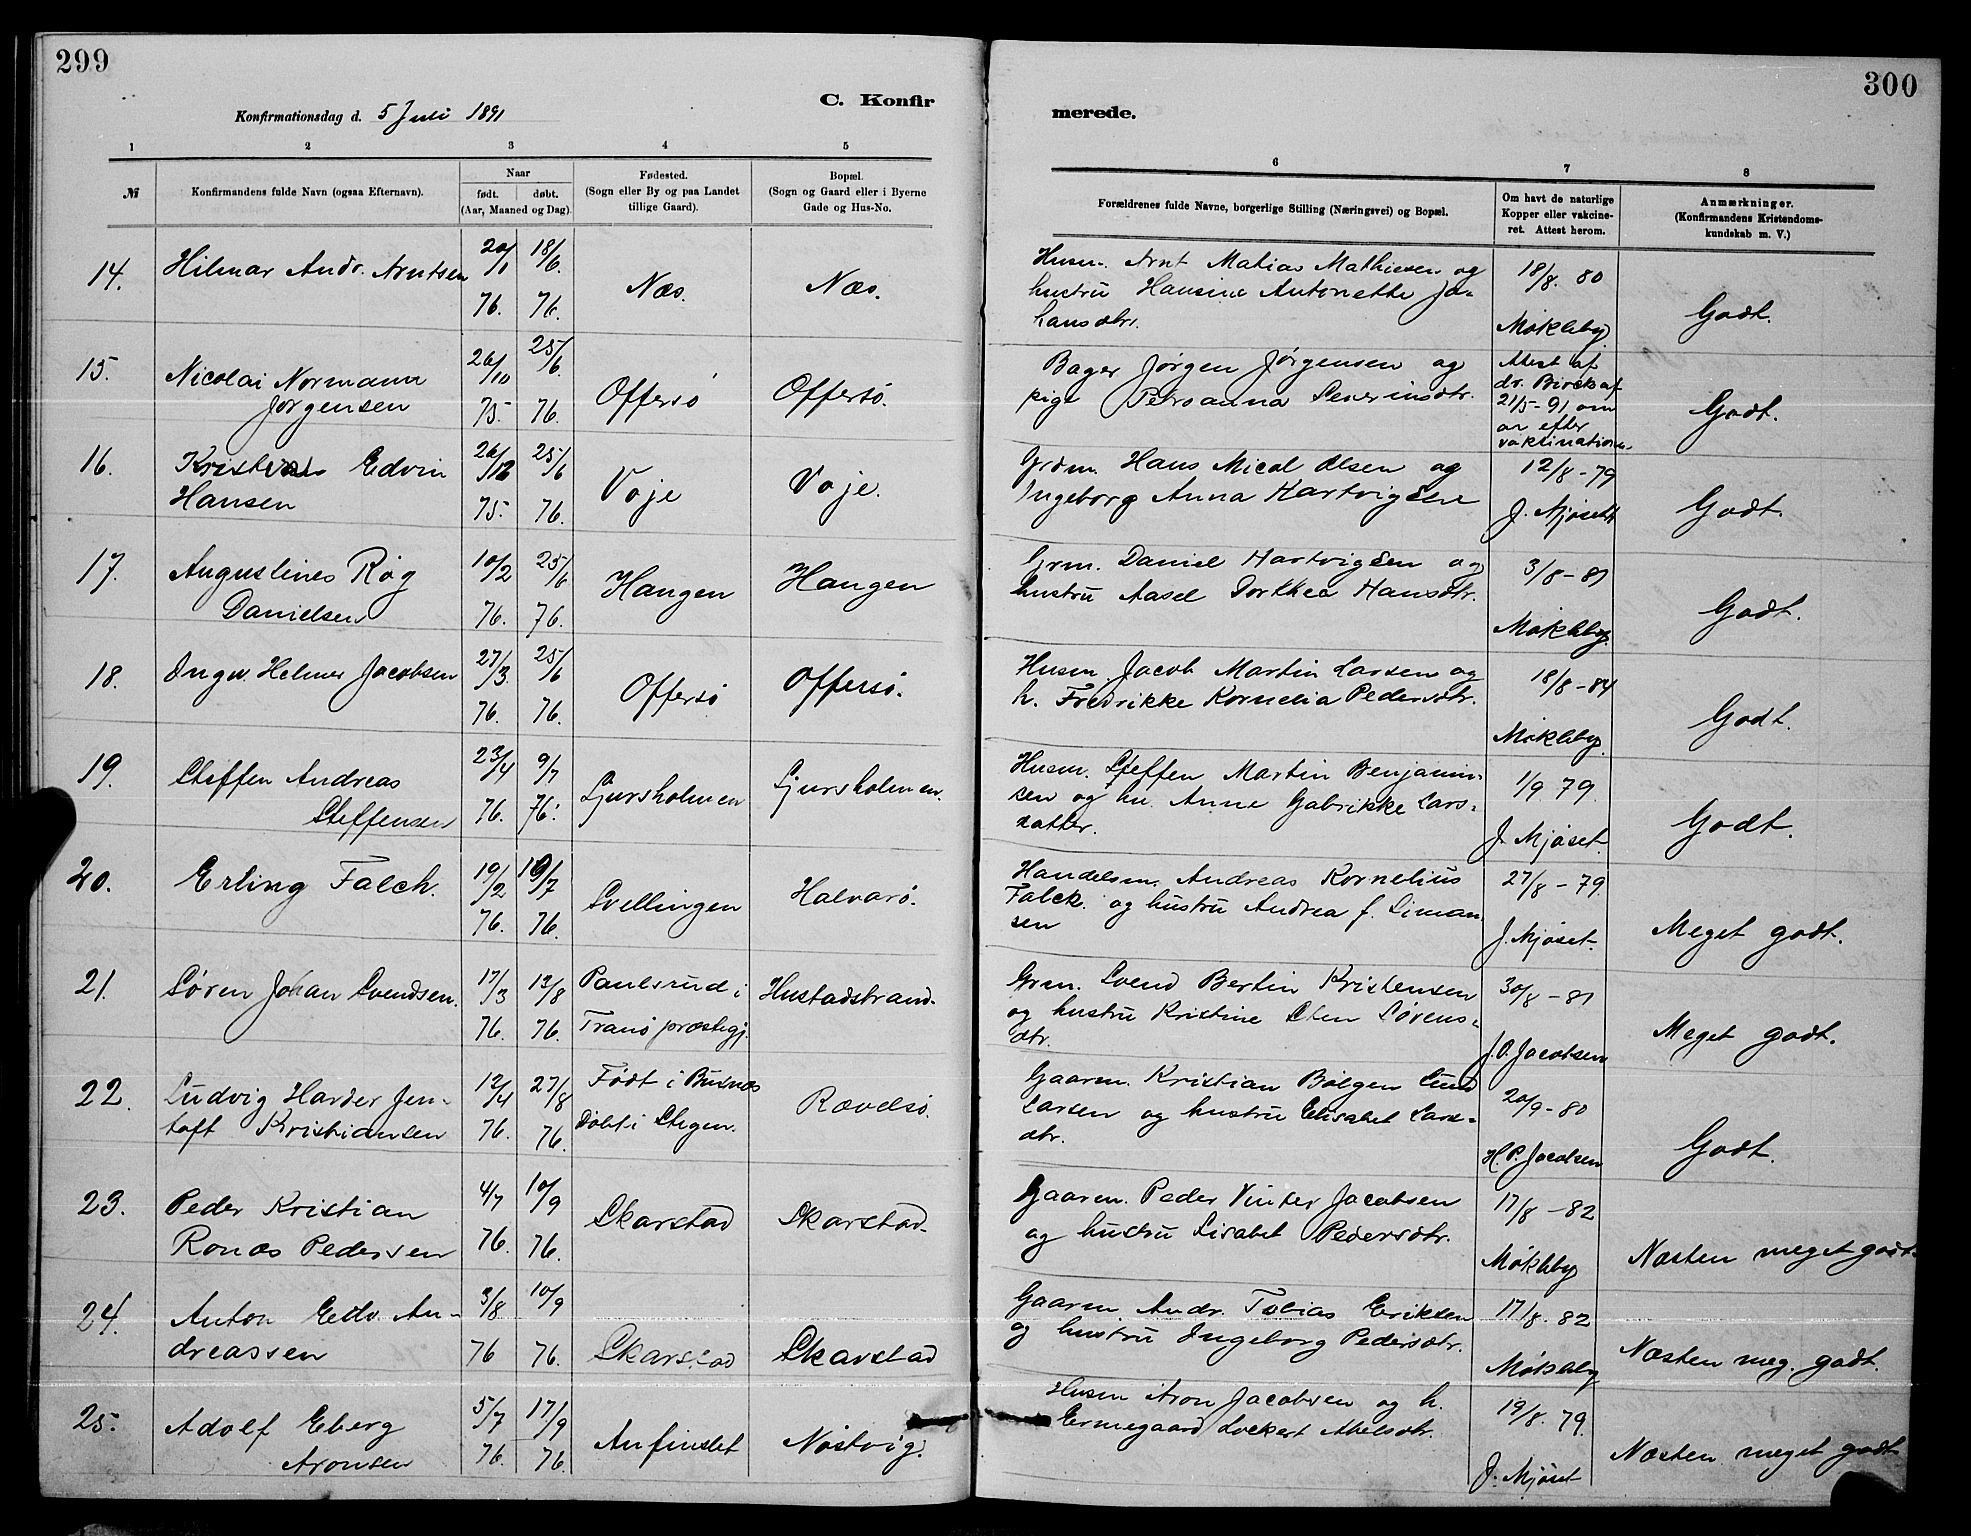 299
300
Konfirmationsdag d. 5 Juli 1891
C. Konfir
merede.
1 2 3 4 5 6 7 8
№
Konfirmandens fulde Navn (ogsaa Efternavn).
Naar
født. døbt.
(Aar, Maaned og Dag).
Fødested.
(Sogn eller By og paa Landet
tillige Gaard).
Bopæl.
(Sogn og Gaard eller i Byerne
Gade og Hus-No.
Forældrenes fulde Navne, borgerlige Stilling (Næringsvei) og Bopæl.
Om havt de naturlige
Kopper eller vakcine-
ret. Attest herom.
Anmærkninger.
(Konfirmandens Kristendoms-
kundskab m. V.)
14. Hilmar Andr. Arntsen
20/1 76. 18/6. 76.
Næs. Næs.
Husm. Arnt Matias Mathiesen og
hustru Hansine Antonette Jo-
hansdtr.
18/8. 80
Møkleby.
Godt.
15. Nicolai Normann
Jørgensen
26/10 75. 25/6. 76.
Offersø Offersø.
Bager Jørgen Jørgensen og
pige Petroanna Severinsdtr.
Attest af
dr. Birck af
21/5-91 om
ar efter
vaktination.
Godt.
16. Edvin
Hansen
26/12 75. 25/6 76.
Voje Voje.
Grdm. Hans Micol Olsen og
Ingeborg Anna Hartvigsen
12/8-79
J. Mjøset
Godt.
17. Augustines Røg
Danielsen
10/2 76. 25/6 76.
Haugen Haugen
Grm. Daniel Hartvigsen og
hustru Aasel Dorthea Hansdtr.
3/8-81
Møkleby.
Godt.
18. Ingv. Helmer Jacobsen
27/3. 76. 25/6 76.
Offersø Offersø.
Husm. Jacob Martin Larsen og
h. Fredrikke Kornelia Pedersdtr.
18/8-84
Møkleby.
Godt.
19. Steffen Andreas
Steffensen
23/4 76. 9/7 76.
Ljursholmen Ljursholmen.
Husm. Steffen Martin Benjamin-
sen og hu. Anne Gabrikke Lars-
datter.
1/9 79.
J. Mjøset.
Godt.
20. Erling Falch.
19/2 76. 19/7 76.
Svellingen Halvarø.
Handelsm. Andreas Kornelius
Falck. og hustru Andrea f. Siman-
sen
27/8-79.
J. Mjøset.
Meget godt.
21. Søren Johan Svendsen.
17/3 76. 13/8 76.
Paulsrud i
Tranø præstegj.
Hustadstrand.
Grm. Svend Bertin Kristensen
og hustru Kristine Sten Sørens-
dtr.
30/8-81
J. O. Jacobsen
Meget godt.
22. Ludvig Harder Jen-
toft Kristiansen
12/4 76. 27/8 76.
Født i Buxnæs
Døbt i Stegen.
Rævelsø.
Gaarm. Kristian Bølgen Lund
Larsen og hustru Elisabet Lars-
dtr.
20/9-80
H. P. Jacobsen
Godt.
23. Peder Kristian
Ronæs Pedersen
4/7 76. 10/9 76.
Skarstad Skarstad.
Gaarm. Peder Vinter Jacobsen
og hustru Lisabet Pedersdtr.
17/8-82
Møkleby
Næsten meget godt.
24. Anton Edv. An-
dreassen
3/8 76 10/9 76.
Skarstad Skarstad
Gaarm. Andr. Tobias Eriksen
og hustru Ingeborg Pedersdtr.
17/8. 82
Møkleby
Næsten meg. godt.
25. Adolf Eberg
Aronsen
5/7 76. 17/9 76.
Anfindset Nøstvig.
Husm Aron Jacobsen og h.
Ermegaard Lockert Abelsdtr.
19/8. 79.
J. Mjøset
Næsten meget godt